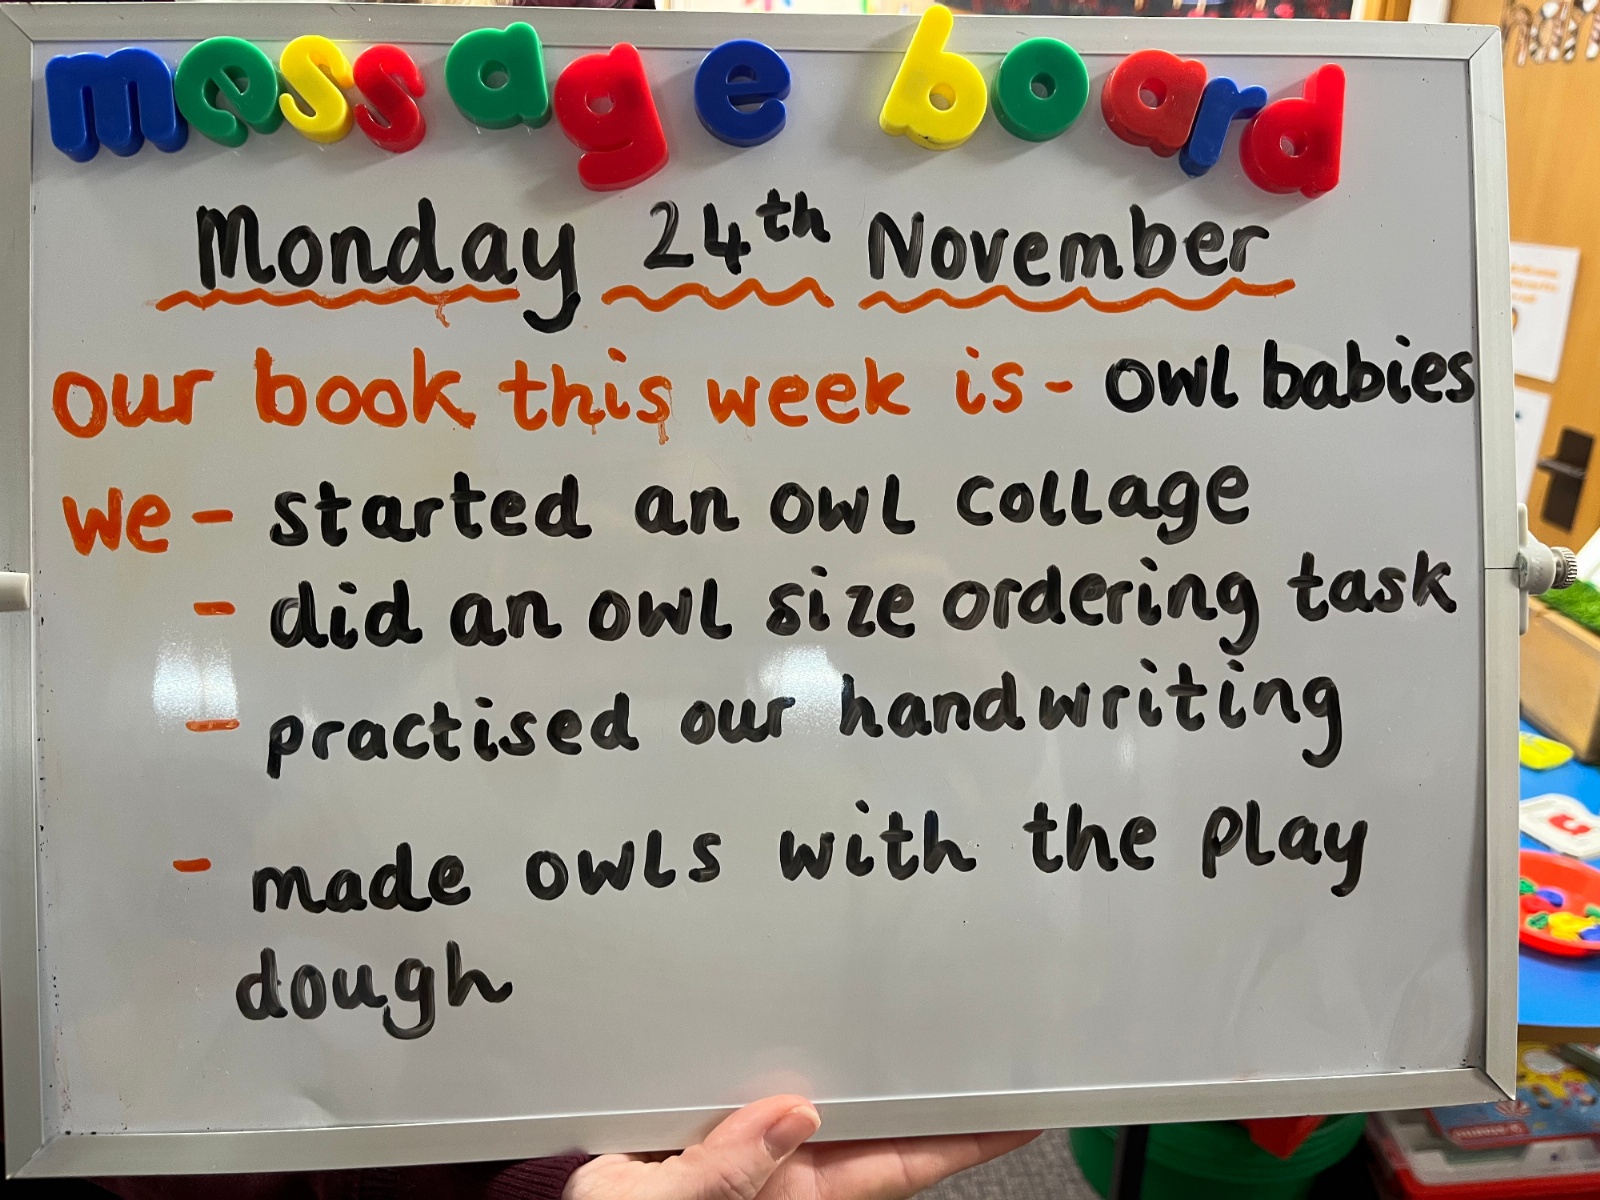 message board
Monday 24th November
our book this week is - owl babies
we - started an owl collage
- did an owl size ordering task
- practised our handwriting
- made owls with the play
dough